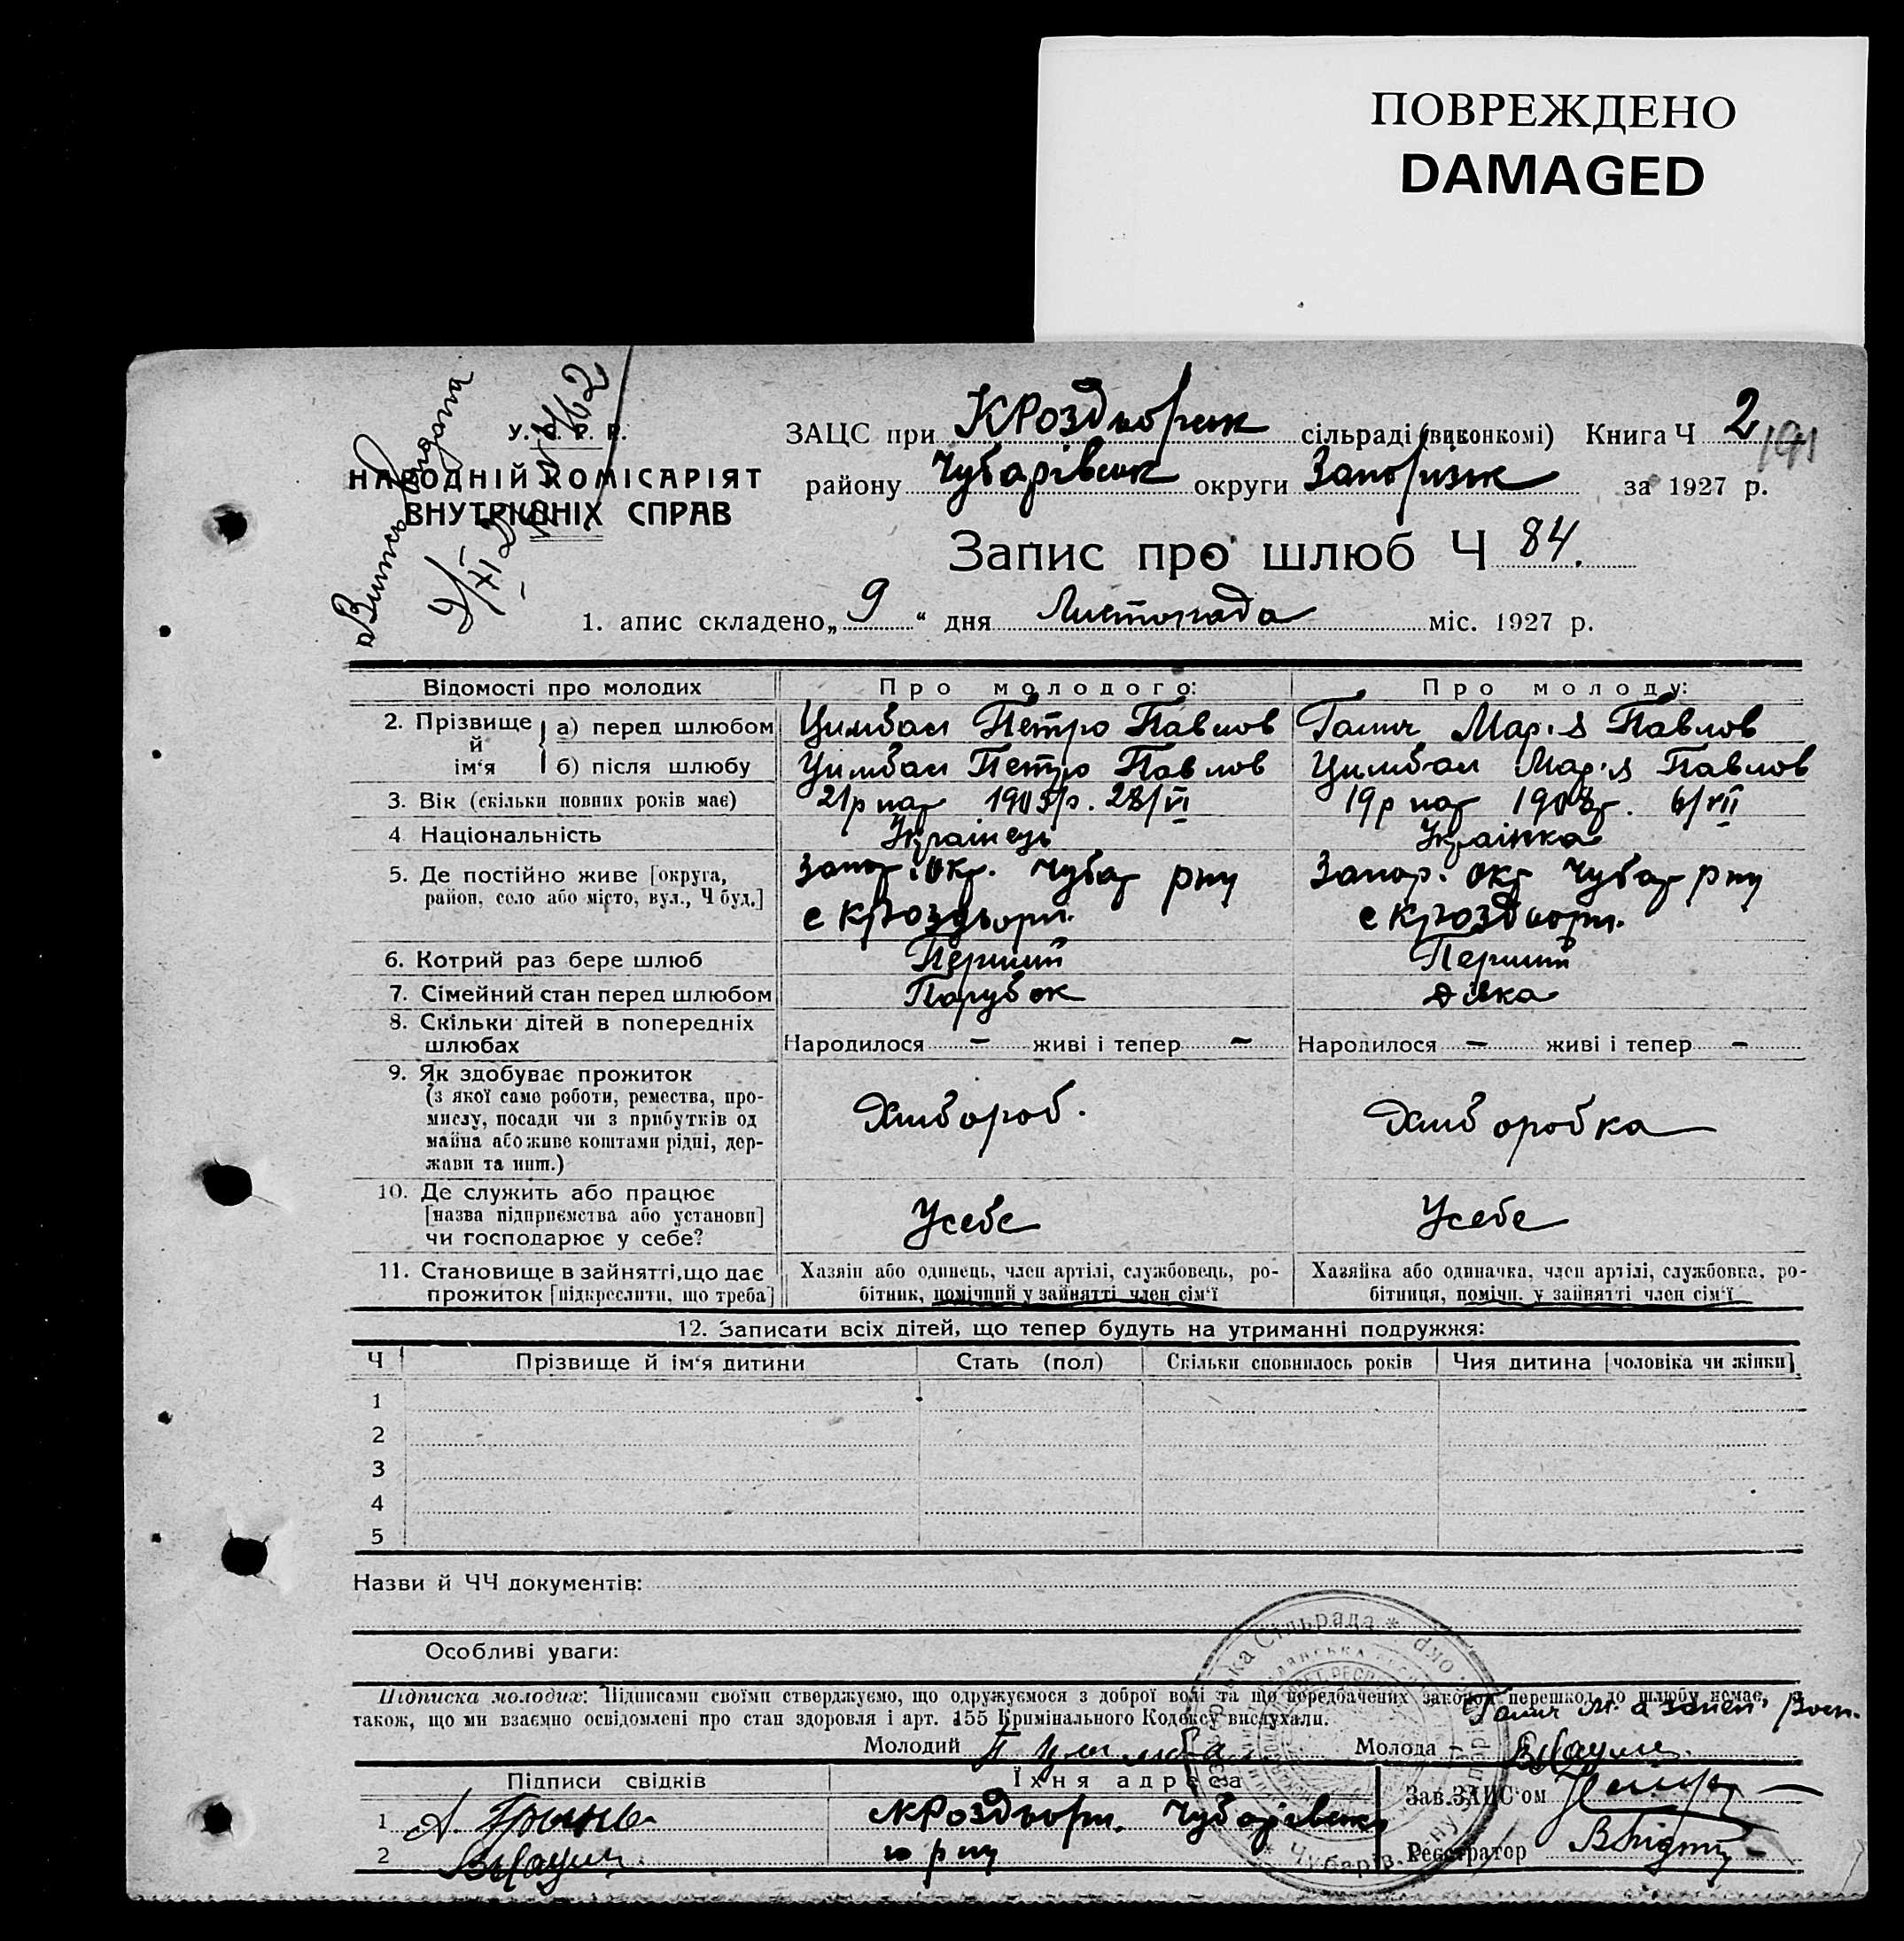 ПОВРЕЖДЕНО
DAMAGED
У. С. Р. Р.
НАРОДНІЙ КОМІСАРІЯТ
ВНУТРІШНІХ СПРАВ
ЗАЦС при КРоздорськ сільраді (виконкомі) Книга Ч 2
191
району Чубарівськ округи Запорізьк за 1927 р.
Запис про шлюб Ч 84.
1. апис складено „ 9 “ дня Листопада міс. 1927 р.
Відомості про молодих Про молодого: Про молоду:
2. Прізвище й ім‘я а) перед шлюбом Цимбал Петро Павлов Галич Марія Павлов
б) після шлюбу Цимбал Петро Павлов Цимбал Марія Павлов
3. Вік (скільки повних років має) 21 р 28/VI 19 р 6/VII
4 Національність Українець Українка
5. Де постійно живе [округа, Запор. окр. Чубар рну Запор. окр Чубар рну
район, село або місто, вул., Ч буд.] с КРоздорн. с КРоздорн.
6. Котрий раз бере шлюб Перший Перший
7. Сімейний стан перед шлюбом Парубок Дівка
8. Скільки дітей в попередніх
шлюбах Народилося – живі і тепер – Народилося – живі і тепер –
9. Як здобуває прожиток
(з якої само роботи, ремества, про-
мислу, посади чи з прибутків од Хлібороб. Хліборобка
майна або живе коштами рідні, дер-
жави та инш.)
10. Де служить або працює
[назва підприємства або установи] Усебе Усебе
чи господарює у себе?
11. Становище в зайнятті, що дає Хазяїн або одинець, член артілі, службовець, ро- Хазяйка або одиначка, член артілі, службовка, ро-
прожиток [підкреслити, що треба] бітник, помічний у зайнятті член сім‘ї бітниця, помічн. у зайнятті член сім‘ї
12. Записати всіх дітей, що тепер будуть на утриманні подружжя:
Ч Прізвище й ім‘я дитини Стать (пол) Скільки сповнилось років Чия дитина [чоловіка чи жінки]
1
2
3
4
5
Назви й ЧЧ документів:
Особливі уваги:
Підписка молодих: Підписами своїми стверджуємо, що одружуємося з доброї волі та що передбачених законом перешкод до шлюбу немає, а
також, що ми взаємно освідомлені про стан здоровля і арт. 155 Кримінального Кодексу вислухали.
Галич М. а
Молодий П Цимбал Молода
Підписи свідків Їхня адреса Зав. ЗАЦС‘ом
1 КРоздорн. Чубарівськ
2 Реєстратор